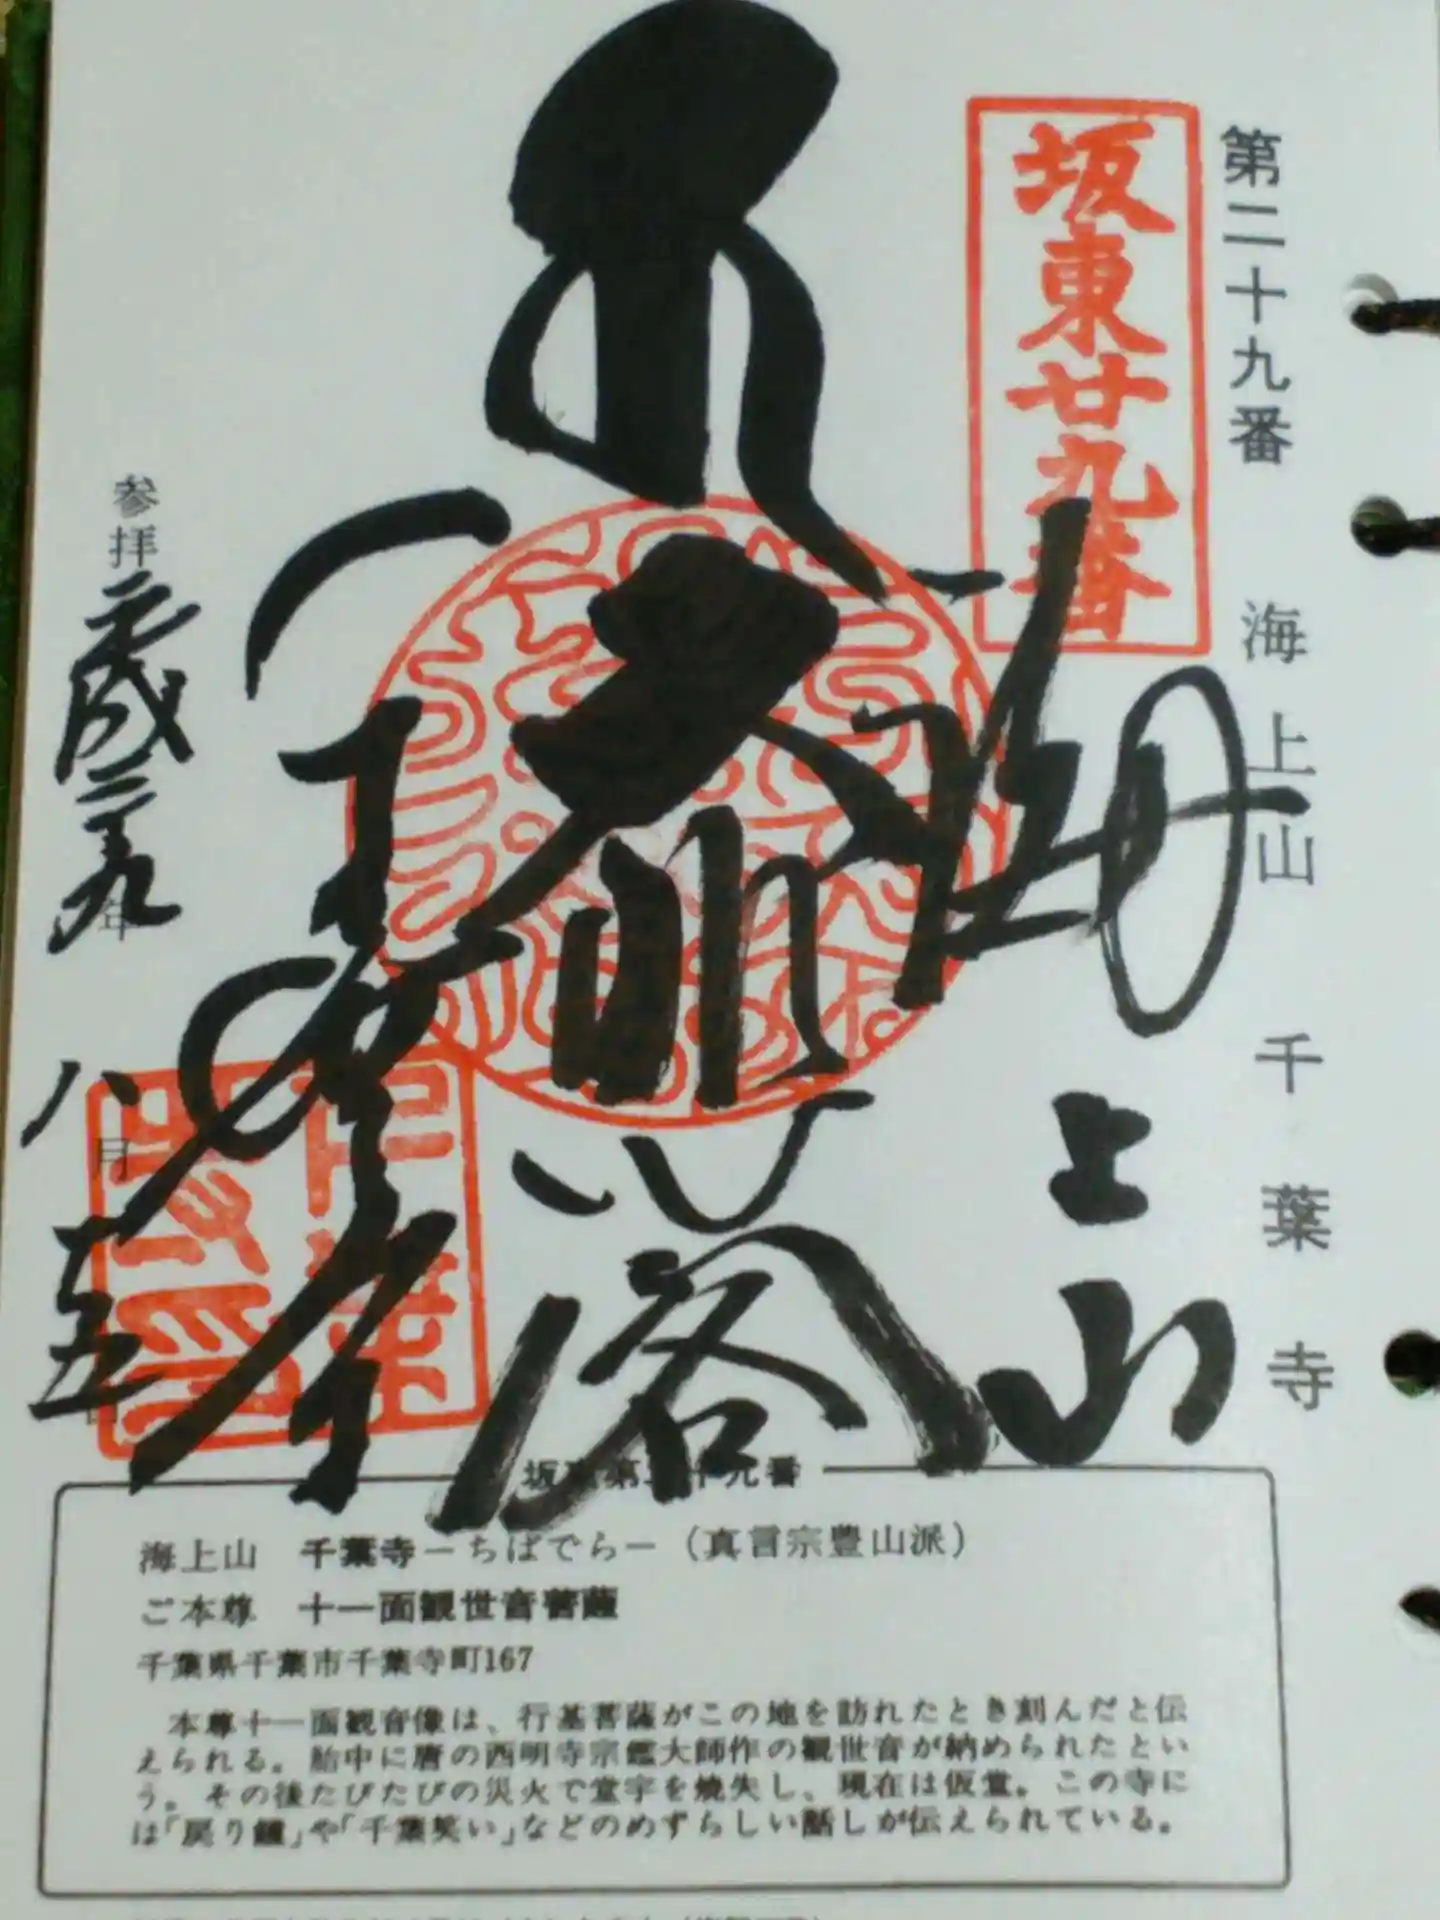 第二十九番 海上山 千葉寺
坂東廿九番
海上山
千葉寺
参拝
平成二十九年
八月
日
海上山 千葉寺－ちばでら－（真言宗豊山派）
ご本尊 十一面観世音菩薩
千葉県千葉市千葉寺町167
本尊十一面観音像は、行基菩薩がこの地を訪れたとき刻んだと伝
えられる。胎中に唐の西明寺宗鑑大師作の観世音が納められたとい
う。その後たびたびの災火で堂宇を焼失し、現在は仮堂。この寺に
は「戻り鐘」や「千葉笑い」などのめずらしい話しが伝えられている。